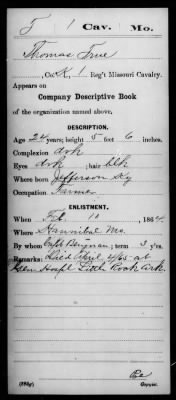 T | 1 | Cav. | Mo.
Thomas True
, Co. K, 1 Reg't Missouri Cavalry.
Appears on
Company Descriptive Book
of the organization named above.
DESCRIPTION.
Age 24 years; height 5 feet 6 inches.
Complexion dark
Eyes dark; hair blk
Where born Jefferson Ky
Occupation Farmer
ENLISTMENT.
When 10, 1864.
Where Hannibal Mo.
By whom Capt ; term 3 y'rs.
Remarks: Died April 4/65 at
Gen Hospl Little Rock Ark.
(383g)
Copyist.